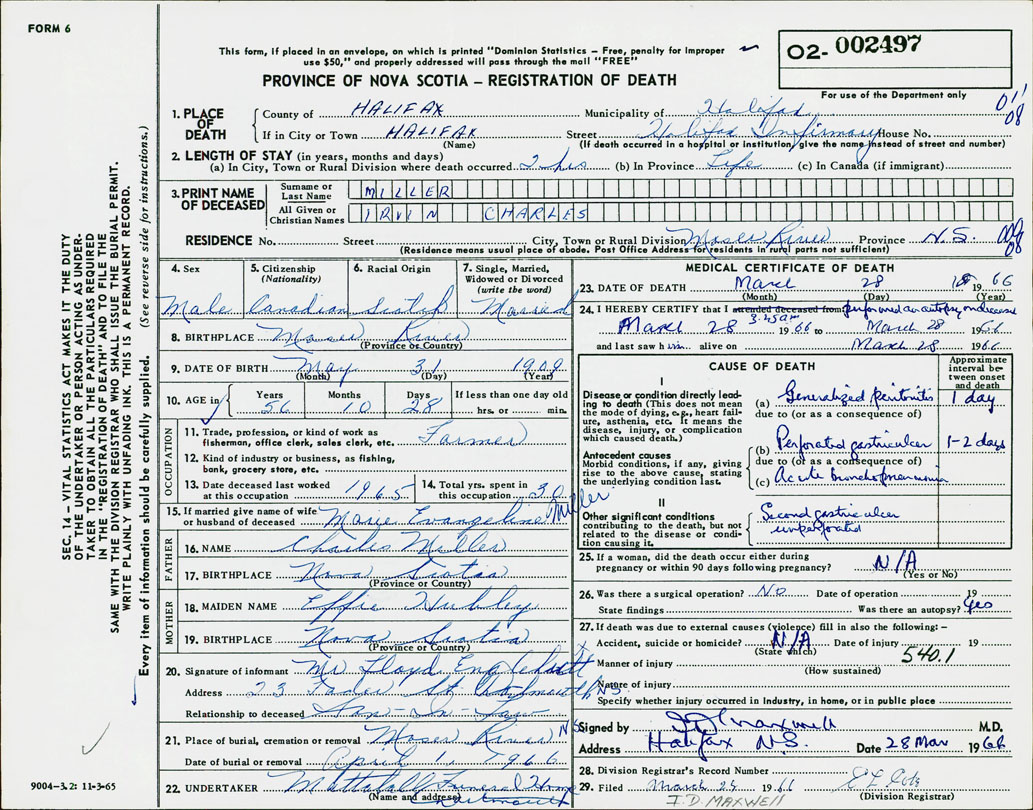 FORM 6
This form, if placed in an envelope, on which is printed "Dominion Statistics – Free, penalty for improper
use $50," and properly addressed will pass through the mail "FREE"
02-002497
PROVINCE OF NOVA SCOTIA – REGISTRATION OF DEATH
For use of the Department only
1. PLACE OF DEATH
County of HALIFAX Municipality of Halifax
If in City or Town HALIFAX Street Halifax Infirmary House No.
(Name) (If death occurred in a hospital or institution, give the name instead of street and number)
2. LENGTH OF STAY (in years, months and days)
(a) In City, Town or Rural Division where death occurred 2 hrs (b) In Province Life (c) In Canada (if immigrant)
3. PRINT NAME OF DECEASED
Surname or Last Name MILLER
All Given or Christian Names IRVIN CHARLES
RESIDENCE No. Street City, Town or Rural Division Moser River Province N.S.
(Residence means usual place of abode. Post Office Address for residents in rural parts not sufficient)
4. Sex Male
5. Citizenship (Nationality) Canadian
6. Racial Origin Scotch
7. Single, Married, Widowed or Divorced (write the word) Married
8. BIRTHPLACE Moser River
(Province or Country)
9. DATE OF BIRTH May 31 1909
(Month) (Day) (Year)
10. AGE in Years 56 Months 10 Days 28 If less than one day old hrs. or min.
OCCUPATION
11. Trade, profession, or kind of work as fisherman, office clerk, sales clerk, etc. Farmer
12. Kind of industry or business, as fishing, bank, grocery store, etc.
13. Date deceased last worked at this occupation 1965
14. Total yrs. spent in this occupation 30
15. If married give name of wife or husband of deceased Marie Evangeline Miller
FATHER
16. NAME Charles Miller
17. BIRTHPLACE Nova Scotia
(Province or Country)
MOTHER
18. MAIDEN NAME Effie Hubley
19. BIRTHPLACE Nova Scotia
(Province or Country)
20. Signature of informant Mr Floyd
Address 23 St Dartmouth NS
Relationship to deceased Son-In-Law
21. Place of burial, cremation or removal Moser River NS
Date of burial or removal April 1, 1966
22. UNDERTAKER Mattatall Funeral Home
(Name and address) Dartmouth
MEDICAL CERTIFICATE OF DEATH
23. DATE OF DEATH March 28 1966
(Month) (Day) (Year)
24. I HEREBY CERTIFY that I attended deceased from performed an autopsy on deceased
March 28 3.45am 1966 to March 28 1966
and last saw him alive on March 28 1966
CAUSE OF DEATH
Approximate interval between onset and death
I
Disease or condition directly leading to death (This does not mean the mode of dying, e.g., heart failure, asthenia, etc. It means the disease, injury, or complication which caused death.)
(a) Generalized peritonitis 1 day
due to (or as a consequence of)
Antecedent causes
Morbid conditions, if any, giving rise to the above cause, stating the underlying condition last.
(b) Perforated gastric ulcer 1-2 days
due to (or as a consequence of)
(c) Acute bronchopneumonia
II
Other significant conditions contributing to the death, but not related to the disease or condition causing it.
Second gastric ulcer
unperforated
25. If a woman, did the death occur either during pregnancy or within 90 days following pregnancy? N/A
(Yes or No)
26. Was there a surgical operation? No Date of operation 19
State findings Was there an autopsy? Yes
27. If death was due to external causes (violence) fill in also the following:–
Accident, suicide or homicide? N/A Date of injury 19
(State which)
Manner of injury 540.1
(How sustained)
Nature of injury
Specify whether injury occurred in industry, in home, or in public place
Signed by J D Maxwell M.D.
Address Halifax N.S. Date 28 Mar 1966
28. Division Registrar's Record Number
29. Filed March 29 1966
(Division Registrar)
J.D. MAXWELL
SEC. 14 – VITAL STATISTICS ACT MAKES IT THE DUTY
OF THE UNDERTAKER OR PERSON ACTING AS UNDER-
TAKER TO OBTAIN ALL THE PARTICULARS REQUIRED
IN THE "REGISTRATION OF DEATH" AND TO FILE THE
SAME WITH THE DIVISION REGISTRAR WHO SHALL ISSUE THE BURIAL PERMIT.
WRITE PLAINLY WITH UNFADING INK. THIS IS A PERMANENT RECORD.
Every item of information should be carefully supplied. (See reverse side for instructions.)
9004-3.2: 11-3-65